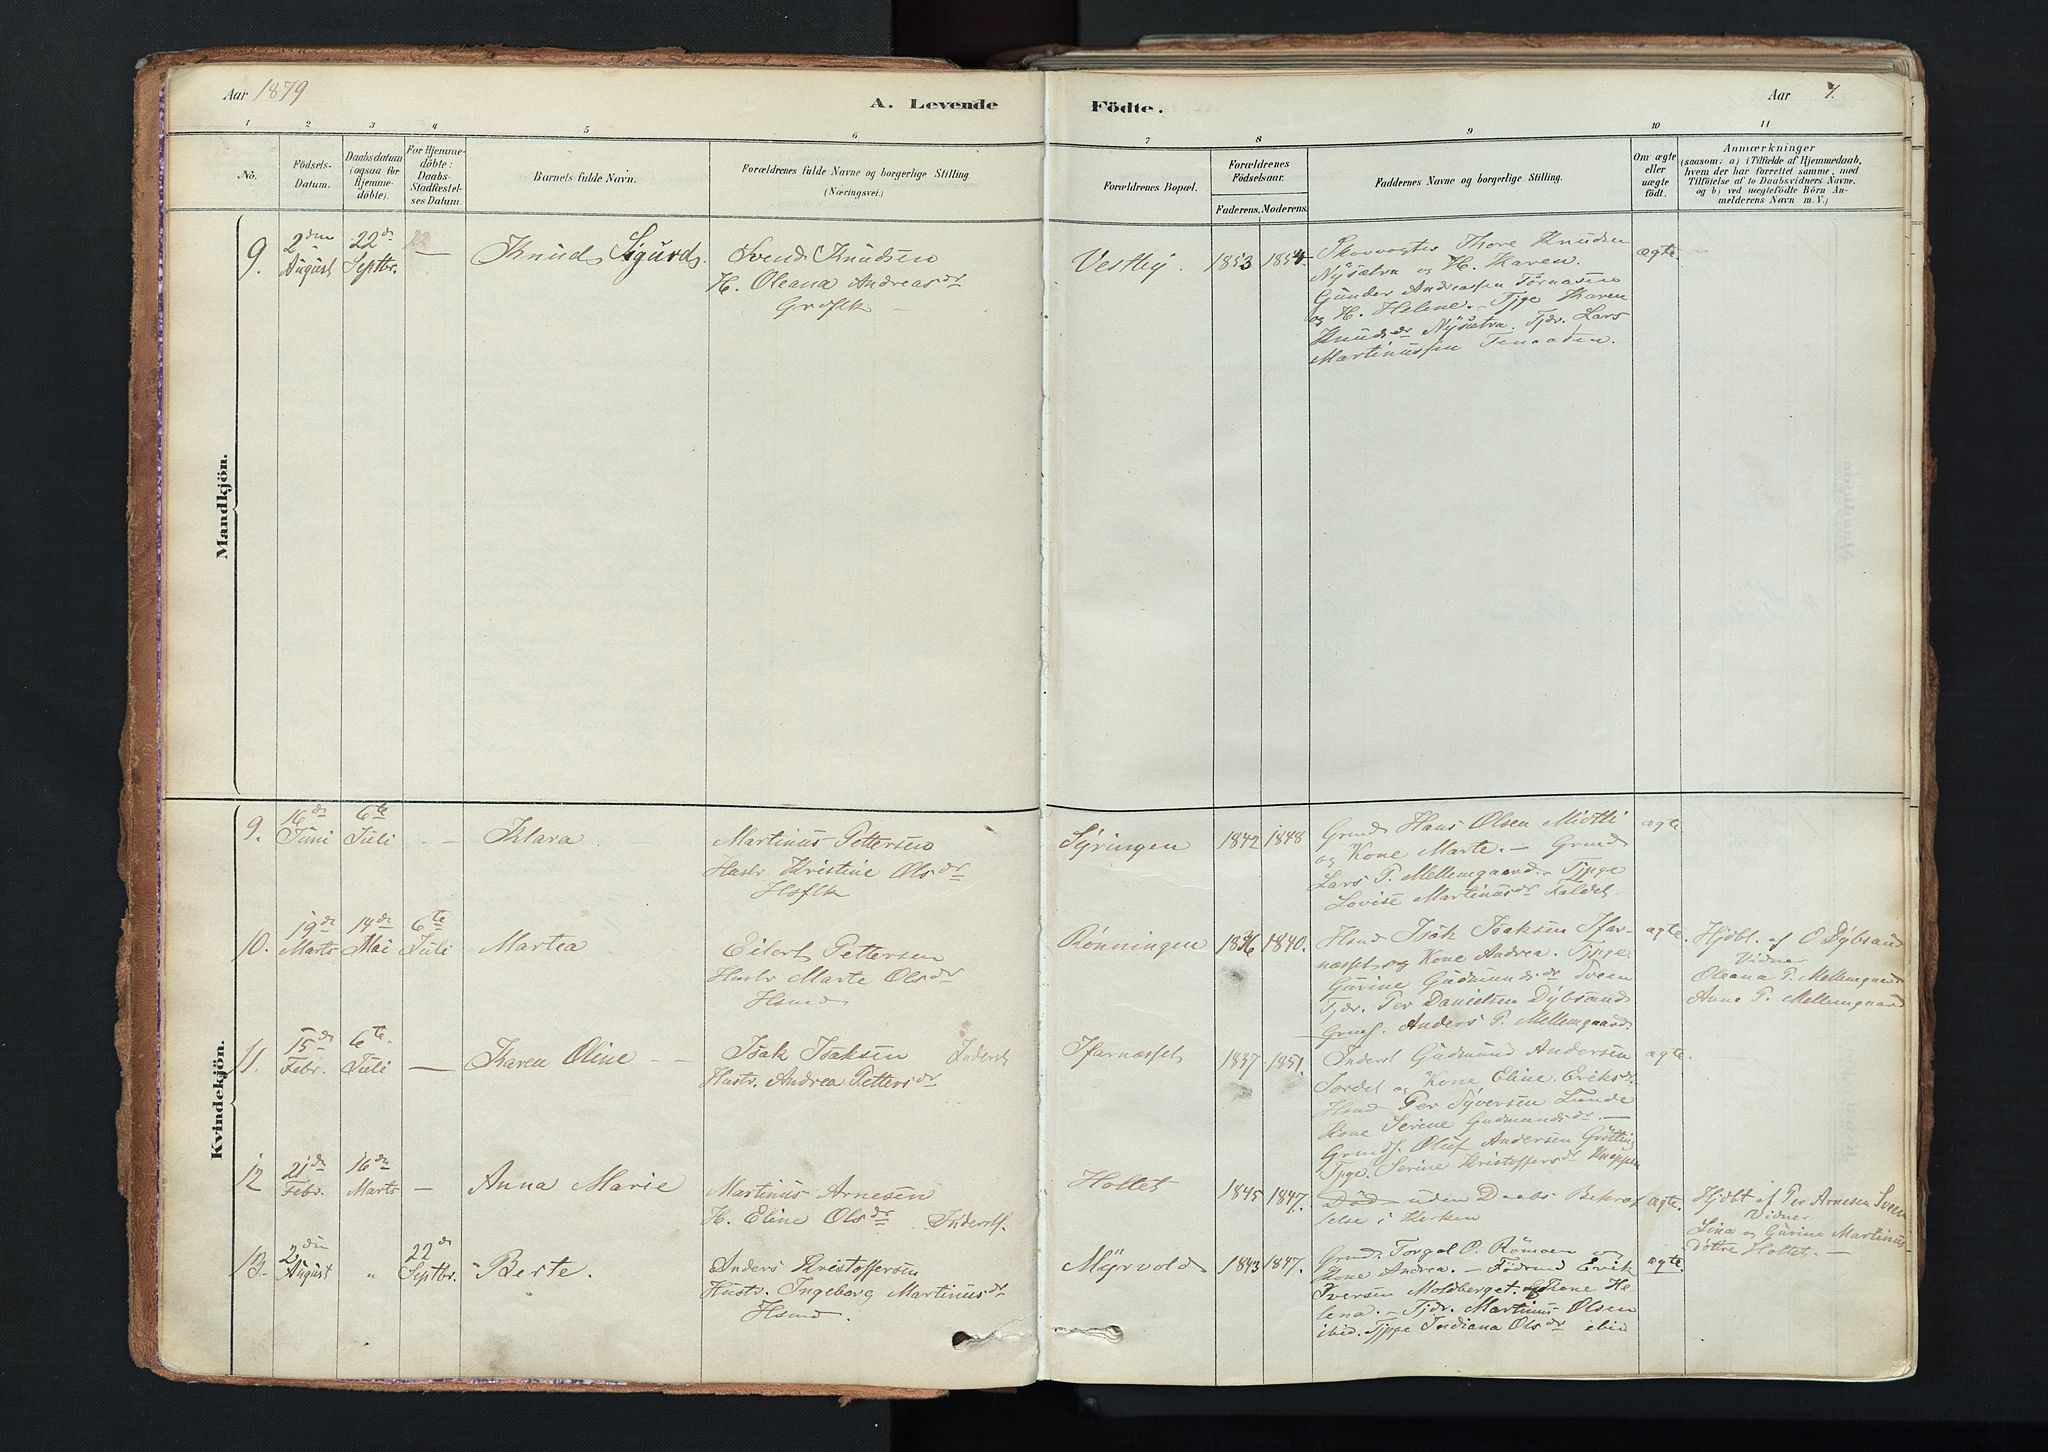 Aar 1879
A. Levende
Födte.
Aar
7.
1
2
3
4
5
6
7
8
9
10
11
No.
Födsels-
Datum.
Daabsdatum
(ogsaa for
Hjemme-
döbte).
For Hjemme-
döbte:
Daabs-
Stadfæstel-
ses Datum.
Barnets fulde Navn.
Forældrenes fulde Navne og borgerlige Stilling
(Næringsvei.)
Forældrenes Bopæl.
Forældrenes
Födselsaar.
Faderens.
Moderens.
Faddernes Navne og borgerlige Stilling.
Om ægte
eller
uægte
födt.
Anmærkninger
(saasom: a) i Tilfælde af Hjemmedaab,
hvem der har forrettet samme, med
Tilföielse af to Daabsvidners Navne,
og b) ved uægtefödte Börn An-
melderens Navn m. V.)
Mandkjön.
9.
2den
August
22de
Septbr.
Knud Sigurd
Svend Knudsen
H. Oleana Andreasdr
Vestby.
1853
Skovvogter Thore Knudsen
Nysætra og H. Karen.
Gunder Andreassen
og H. Helene. Tjge Karen
Knudsdr Nysætra. Tjdr. Lars
Martinussen
ægte
Kvindekjön.
9.
16de
Juni
6te
Juli
Klara
Martinus Pettersen
Hustr Kristine Olsdr
Syringen
1842
1848
Hans Olsen Midtli
og Kone Marte. —
Lars P. Mellemgaard. Tjpge
Lovise Martinusdr
ægte
10.
19de
Marts
14de
Mai
6te
Juli
Martea
Eilert Pettersen
Hustr Marte Olsdr
Hsmd
Rönningen
1836
1840.
Hsmd Isak Isaksen Ifar-
næsset og Kone Andrea. Tjpge.
Gurine Gudmundsdr Tveen
Tjdr. Per Danielsen Dybsand
Anders P. Mellemgaard.
ægte.
Hjdbt. af O Dybsand
Vidner
Oleana P. Mellemgaard
Anne P. Mellemgaard
11.
15de
Febr.
6te
Juli
Karen Oline
Isak Isaksen Inderst
Hustr. Andrea Pettersdr
Ifarnæsset
1837
1851.
Inderst Gudmund Andersen
og Kone Eline Eriksdr.
Hsmd Per Syversen Lunde
Kone Serine Gudmundsdr. —
Oluf Andersen Grötting
Tjpge. Serine Kristoffersdr
ægte
12
21de
Febr.
16de
Marts
Anna Marie
Martinus Arnesen
H. Eline Olsdr
Holtet
1845
1847.
Död uden Daabs Bekræf
telse i Kirken
ægte.
Hjdbt af Per Arnesen
Vidner
Lina og Gurine Martinus
döttre Holtet. —
13.
2den
August
"
22de
Septbr.
Berte.
Anders Kristoffersen
Hustr. Ingeborg Martinusdr
Hsmd.
Myrvold
1843
1847.
Torgal O. Römoen og
Kone Andrea. — Föderaad Erik
Iversen Moldberget. og Kone He
lena. — Tjdr. Martinus Olsen
ibid. Tjpge Indiana Olsdr ibid
ægte.